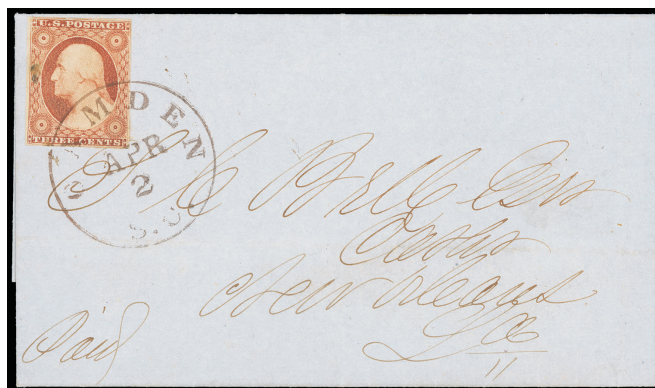 U.S. POSTAGE
THREE CENTS
CAMDEN
APR
2
S.C
New Orleans
La
11
Paid